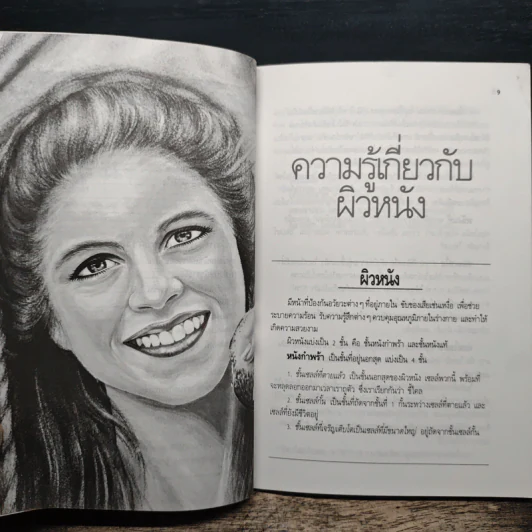 9
ความรู้เกี่ยวกับ
ผิวหนัง
ผิวหนัง
มีหน้าที่ป้องกันอวัยวะต่างๆ ที่อยู่ภายใน ขับของเสียเช่นเหงื่อ เพื่อช่วย
ระบายความร้อน รับความรู้สึกต่างๆ ควบคุมอุณหภูมิภายในร่างกาย และทำให้
เกิดความสวยงาม
ผิวหนังแบ่งเป็น 2 ชั้น คือ ชั้นหนังกำพร้า และชั้นหนังแท้
หนังกำพร้า เป็นชั้นที่อยู่นอกสุด แบ่งเป็น 4 ชั้น
1. ชั้นเซลล์ที่ตายแล้ว เป็นชั้นนอกสุดของผิวหนัง เซลล์พวกนี้ พร้อมที่
จะหลุดลอกออกมาเวลาเราถูตัว ซึ่งเราเรียกกันว่า ขี้ไคล
2. ชั้นเซลล์กั้น เป็นชั้นที่ถัดจากชั้นที่ 1 กั้นระหว่างเซลล์ที่ตายแล้ว และ
เซลล์ที่ยังมีชีวิตอยู่
3. ชั้นเซลล์ที่เจริญเติบโตเป็นเซลล์ที่มีขนาดใหญ่ อยู่ถัดจากชั้นเซลล์กั้น